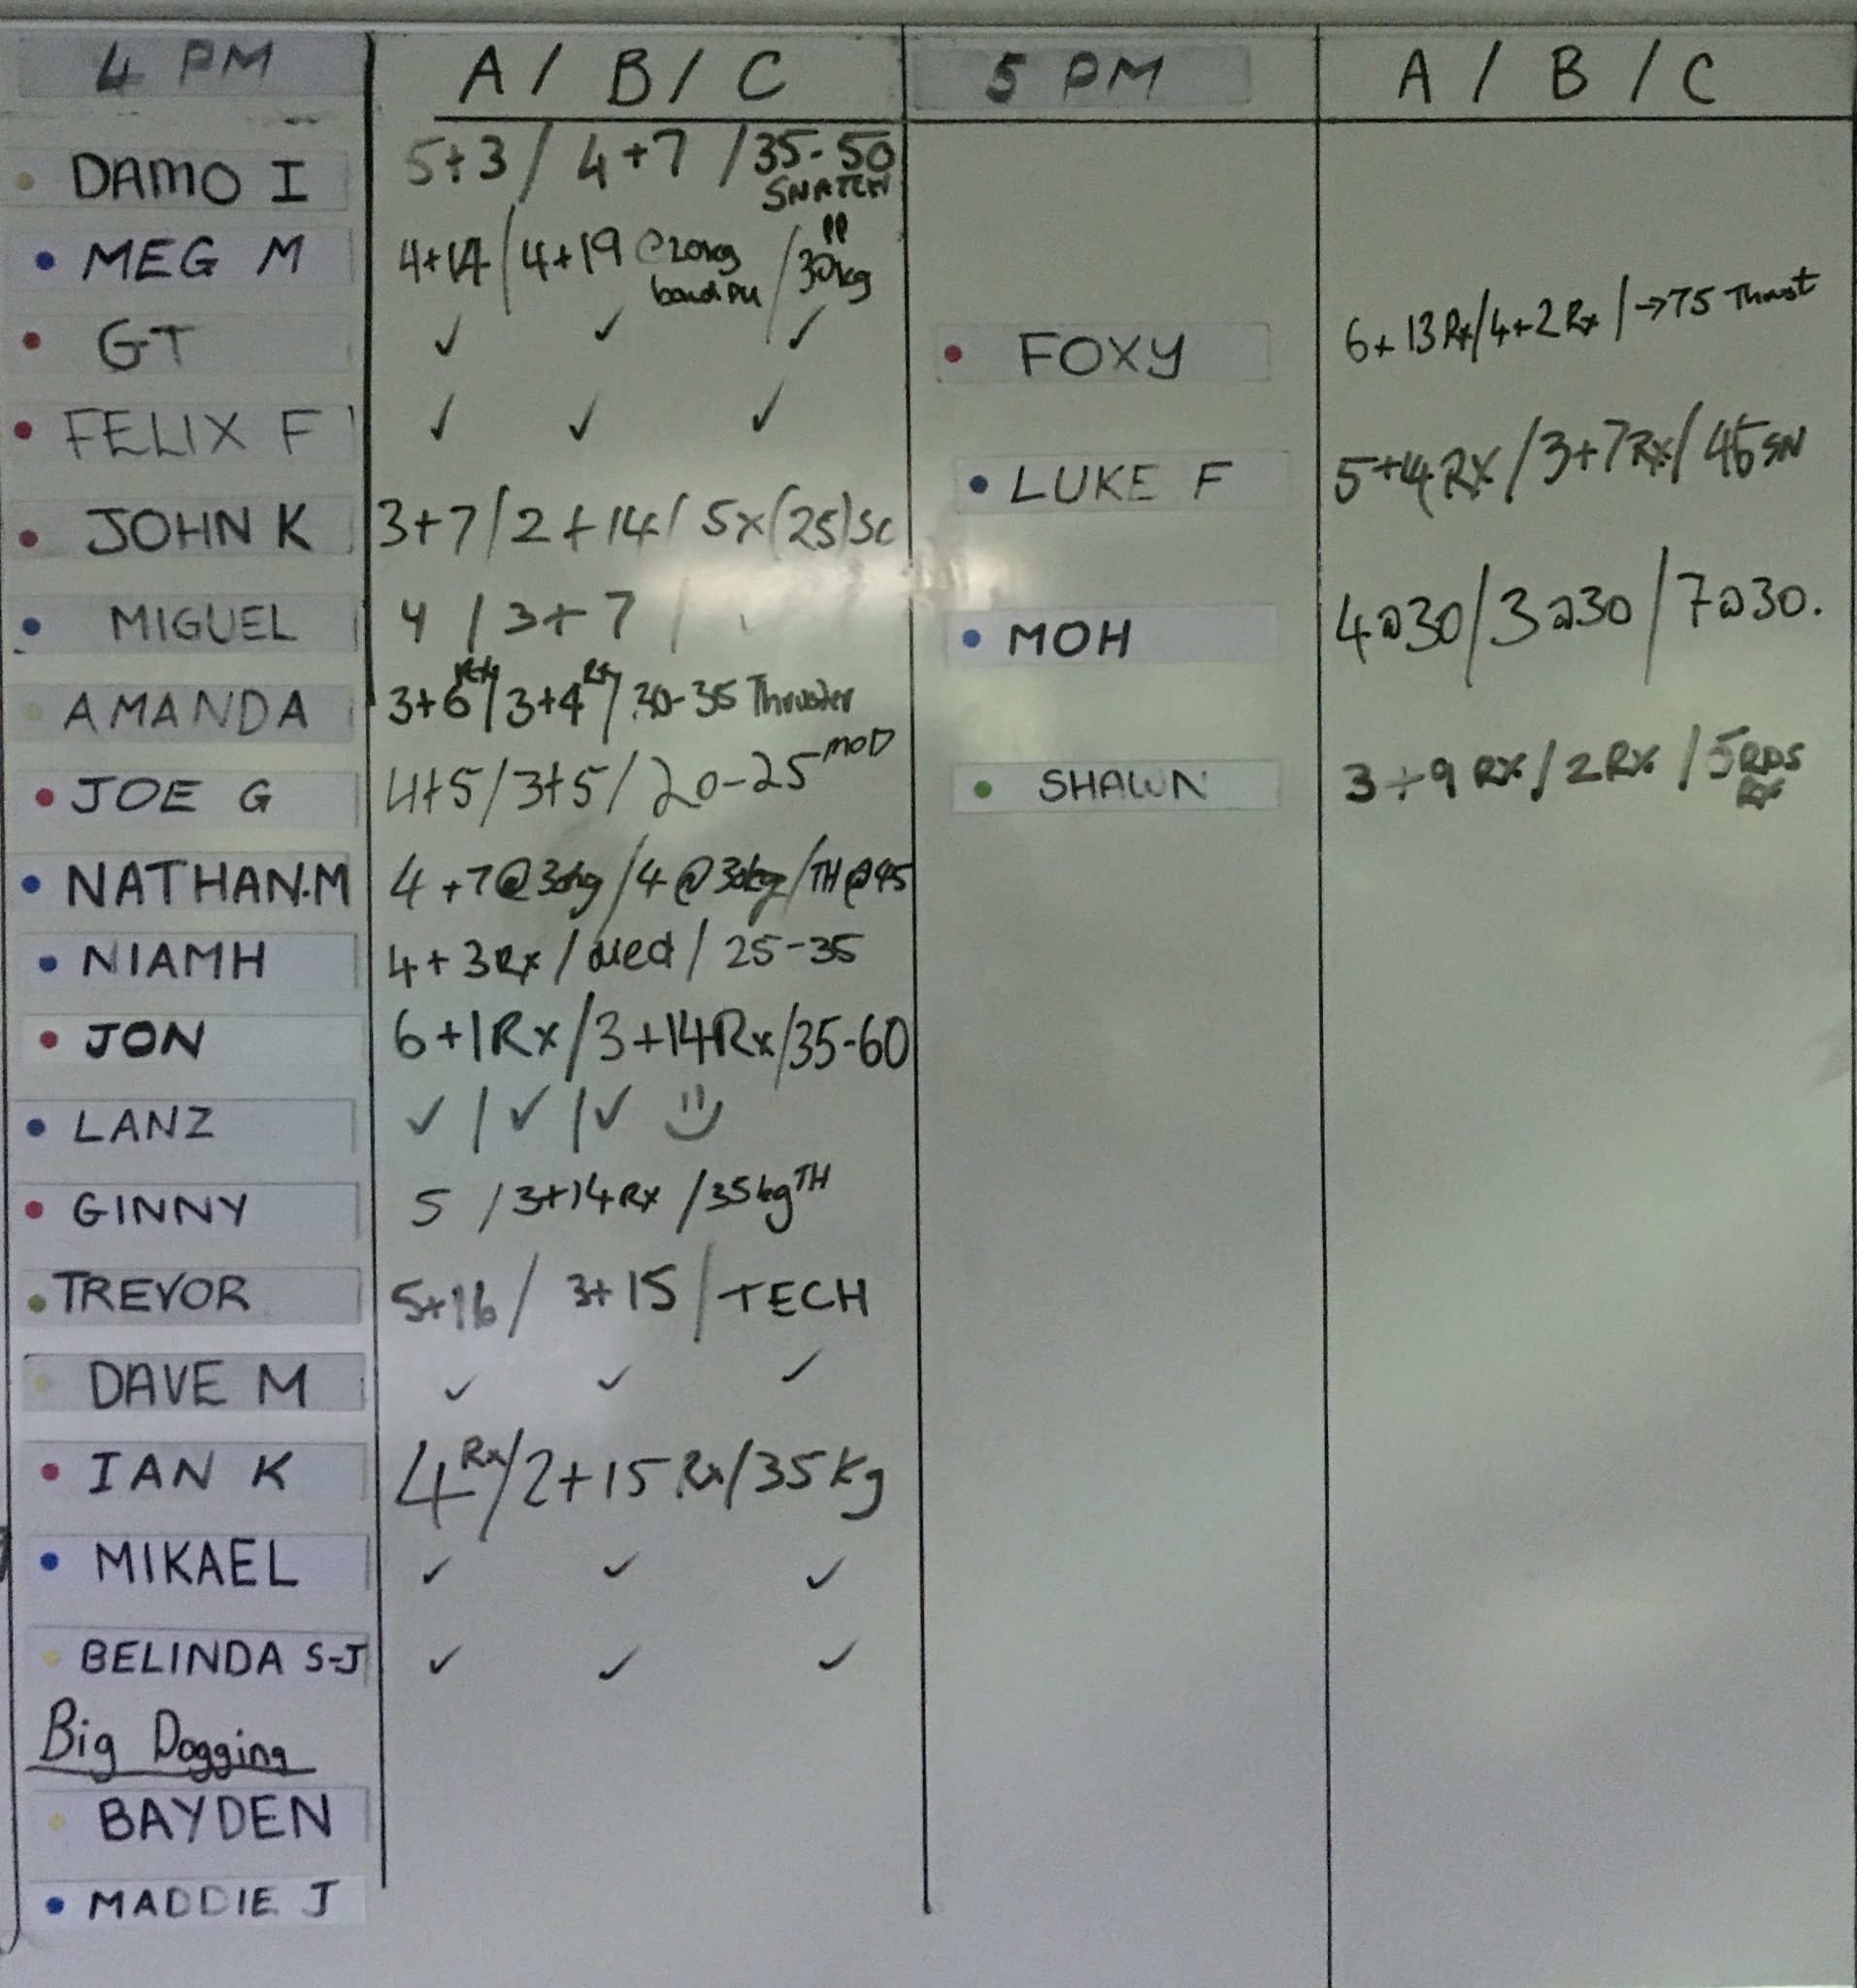 4 PM A / B / C 5 PM A / B / C
DAMO I 5+3 / 4+7 / 35-50 SNATCH
MEG M 4+14 / 4+19 @20kg band PU / PP 30kg
GT ✓ ✓ ✓
FOXY 6+13 Rx / 4+2 Rx / →75 Thrust
FELIX F ✓ ✓ ✓
LUKE F 5+4 RX / 3+7 Rx / 45 SN
JOHN K 3+7 / 2+14 / 5x(25) Sc
MIGUEL 4 / 3+7 /
MOH 4@30 / 3@30 / 7@30.
AMANDA 3+6 / 3+4 Rx / 30-35 Thruster
JOE G 4+5 / 3+5 / 20-25 MOD
SHAWN 3+9 RX / 2 RX / 5 RDS RX
NATHAN.M 4+7@30kg / 4@30kg / TH@45
NIAMH 4+3 Rx / Med / 25-35
JON 6+1 Rx / 3+14 Rx / 35-60
LANZ ✓ / ✓ / ✓
GINNY 5 / 3+14 Rx / 35kg TH
TREVOR 5+16 / 3+15 / TECH
DAVE M ✓ ✓ ✓
IAN K 4 Rx / 2+15 Rx / 35 Kg
MIKAEL ✓ ✓ ✓
BELINDA S-J ✓ ✓ ✓
Big Dogging
BAYDEN
MADDIE J